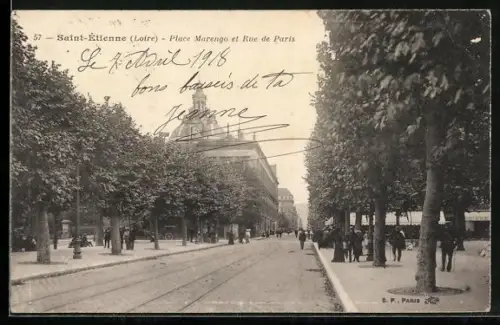 57 - Saint-Étienne (Loire) - Place Marengo et Rue de Paris
Le 7 Avril 1918
bons baisers de ta
Jeanne
E. P., PARIS